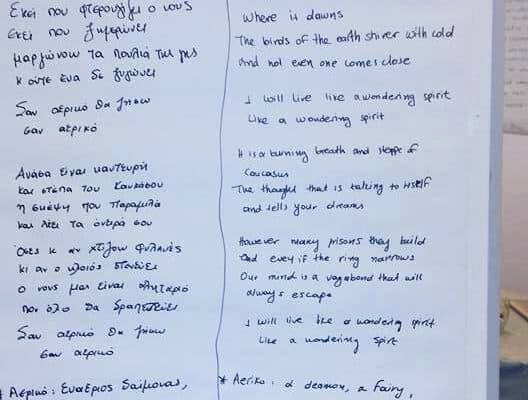 Εκεί που φτερουγίζει ο νους
Εκεί που ξημερώνει
μαργώνουν τα πουλιά της γης
κ ούτε ένα δε ζυγώνει
Σαν αερικό θα ζήσω
σαν αερικό
Ανάσα είναι καυτερή
και στέπα του Καυκάσου
η σκέψη που παραμιλά
και λέει τα όνειρά σου
Όσες κ αν χτίζουν φυλακές
κι αν ο κλοιός στενεύει
ο νους μας είναι αληταριό
που όλο θα δραπετεύει
Σαν αερικό θα ζήσω
σαν αερικό
* Αερικό: Εναέριος δαίμονας,
Where is dawns
The birds of the earth shiver with cold
And not even one comes close
I will live like a wondering spirit
Like a wondering spirit
It is a burning breath and steppe of
Caucasus
The thought that is talking to itself
and tells your dreams
However many prisons they build
And even if the ring narrows
Our mind is a vagabond that will
always escape
I will live like a wondering spirit
Like a wondering spirit
* Aeriko: a deamon, a fairy,